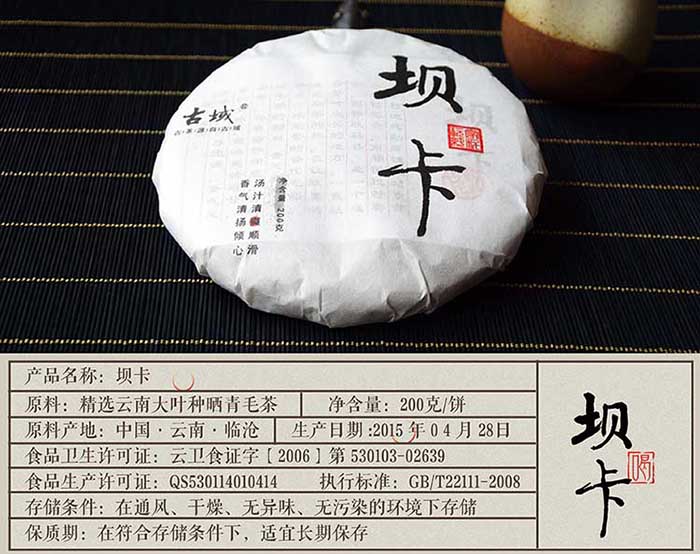 坝卡
古域
古·茶·源·自·古·域
净含量:200克
汤汁清 顺滑
香气清扬倾心
产品名称：坝卡
原料：精选云南大叶种晒青毛茶 净含量：200克/饼
原料产地：中国·云南·临沧 生产日期:2015年04月28日
食品卫生许可证：云卫食证字［2006］第 530103-02639
食品生产许可证：QS530114010414 执行标准：GB/T22111-2008
存储条件：在通风、干燥、无异味、无污染的环境下存储
保质期：在符合存储条件下，适宜长期保存
坝卡
喝